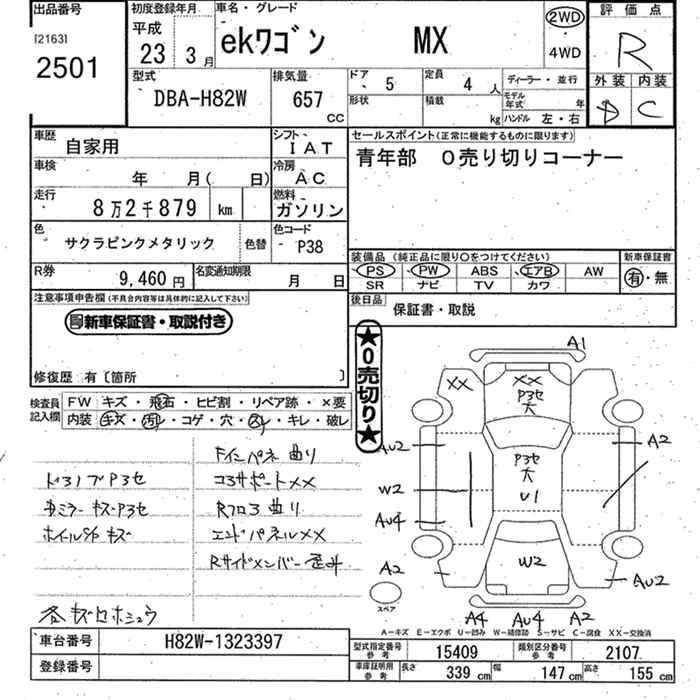 出品番号
[2163]
2501
初度登録年月
平成
23 3月
車名・グレード
ekワゴン MX
2WD
・
4WD
評価点
R
外装 内装
D C
型式
DBA-H82W
排気量
657 CC
ドア 5
形状
定員 4人
積載 kg
ディーラー・並行
モデル年式 年
ハンドル 左・右
車歴
自家用
シフト
IAT
車検
年 月( 日)
冷房
AC
走行
8万2千879 km
燃料
ガソリン
色
サクラピンクメタリック
色替
色コード
P38
R券
9,460円
名変通知期限
月 日
セールスポイント(正常に機能するものに限ります)
青年部 0売り切りコーナー
装備品 (純正品に限り○をつけてください)
PS PW ABS エアB AW
SR ナビ TV カワ
新車保証書
有・無
後日品
保証書・取説
注意事項申告欄 (不具合内容等は具体的に記入して下さい)
新車保証書・取説付き
修復歴 有〔箇所 〕
★0売切り★
検査員記入欄
FW キズ・飛石・ヒビ割・リペア跡・×要
内装 キズ・汚レ・コゲ・穴・スレ・キレ・破レ
Fインパネ 曲り
ドヨノブ P3セ
コアサポートXX
カミラー キズ・P3セ
Rフロア 曲り
ホイルS/C キズ
エンドパネルXX
Rサイドメンバー 歪み
各キズセホシュウ
A1
XX
XX
P3セ
大
AU2
A2
P3セ
大
U1
W2
AU4
W2
A2
AU2
スペア
A4 AU4 A2
A－キズ E－エクボ U－凹み W－補修跡 S－サビ C－腐食 XX－交換済
車台番号
H82W-1323397
登録番号
型式指定番号 参考
15409
類別区分番号 参考
2107
車庫証明用 参考
長さ 339 cm
幅 147 cm
高さ 155 cm